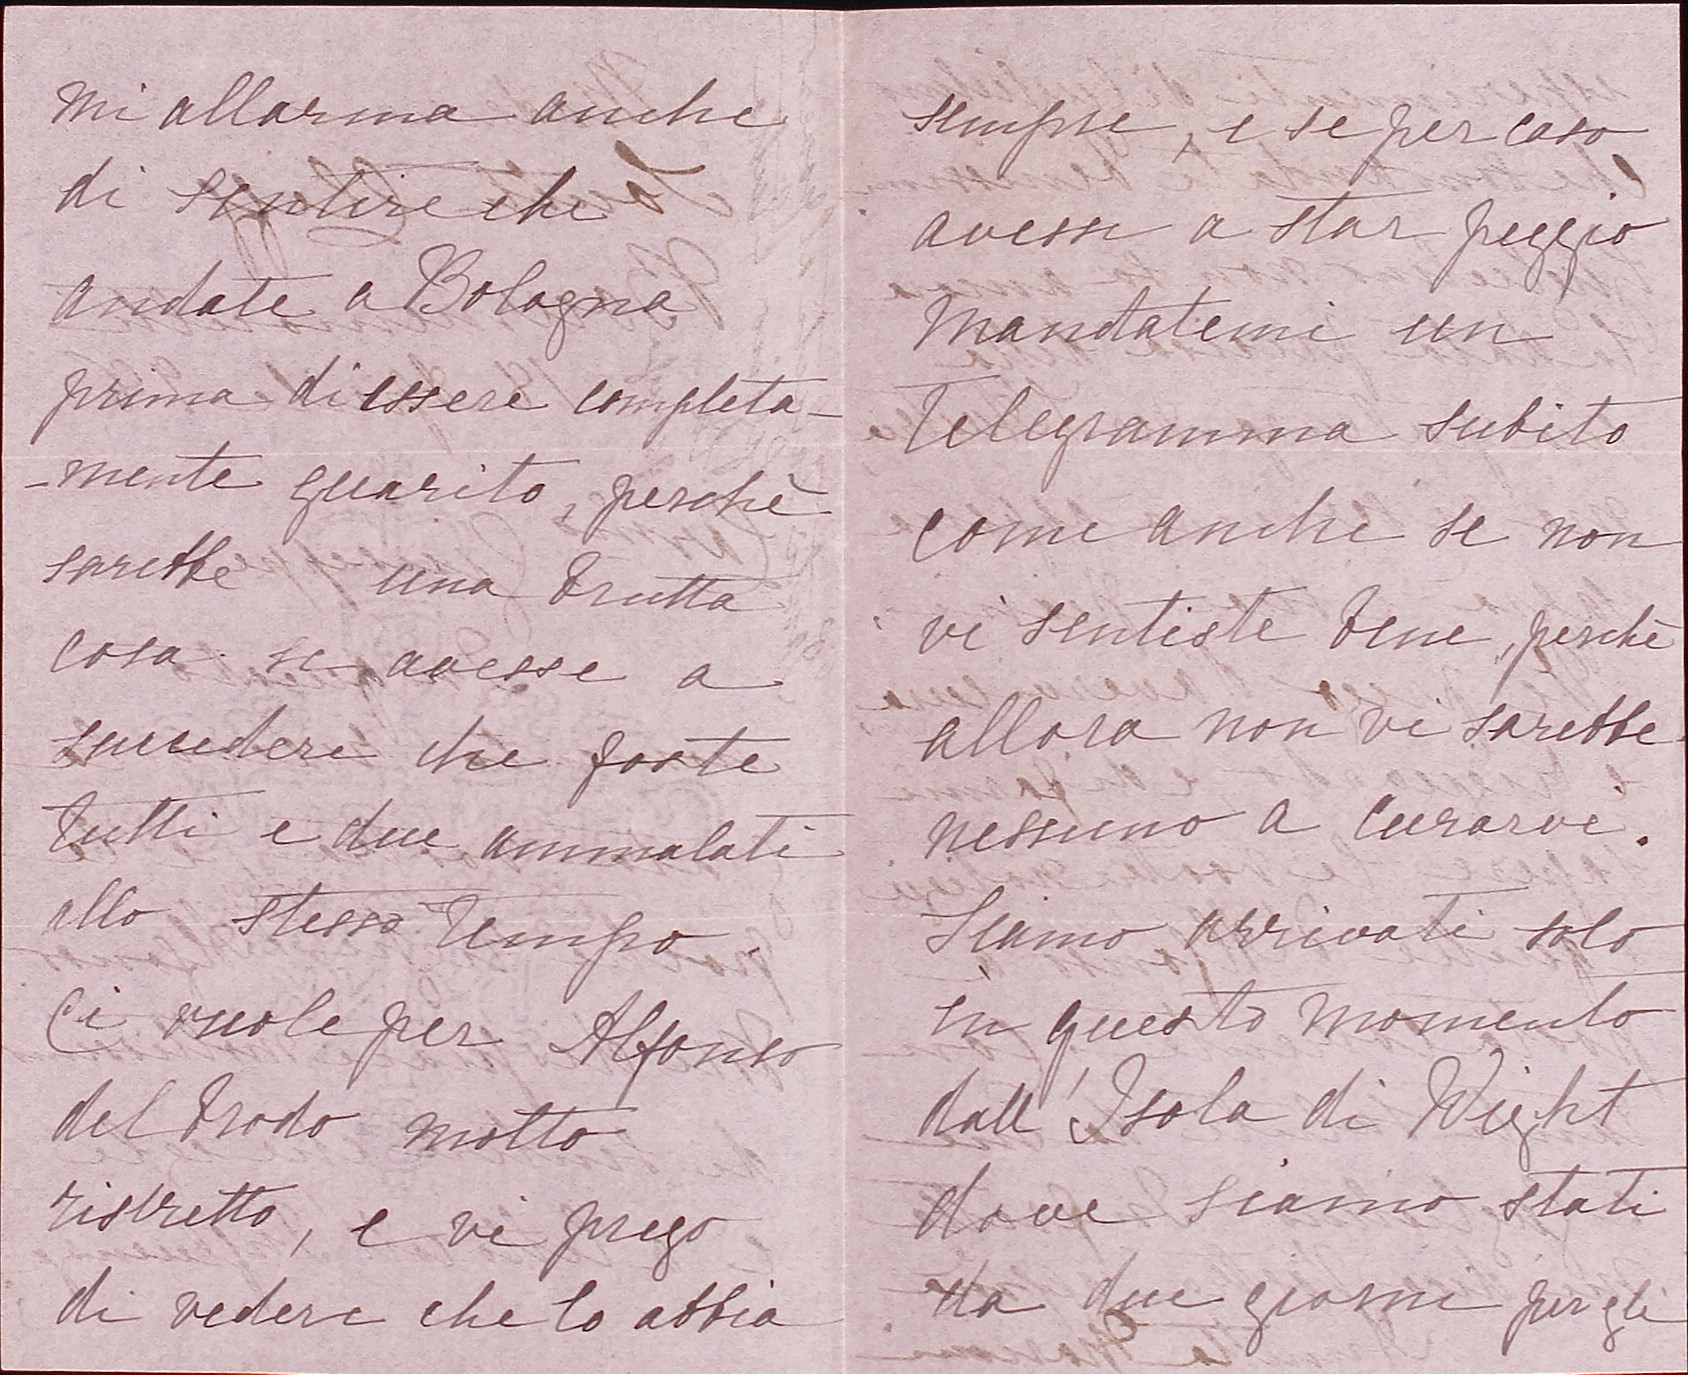 mi allarma anche
di sentire che
andate a Bologna
prima di essere completa-
-mente guarito, perchè
sarebbe una brutta
cosa se avesse a
succedere che foste
tutti e due ammalati
allo stesso tempo.
Ci vuole per Alfonso
del brodo molto
ristretto, e vi prego
di vedere che lo abbia
sempre, e se per caso
avesse a star peggio
mandatemi un
telegramma subito
come anche se non
vi sentiste bene, perchè
allora non vi sarebbe
nessuno a curarvi.
Siamo arrivati solo
in questo momento
dall'Isola di Wight
dove siamo stati
da due giorni per gli